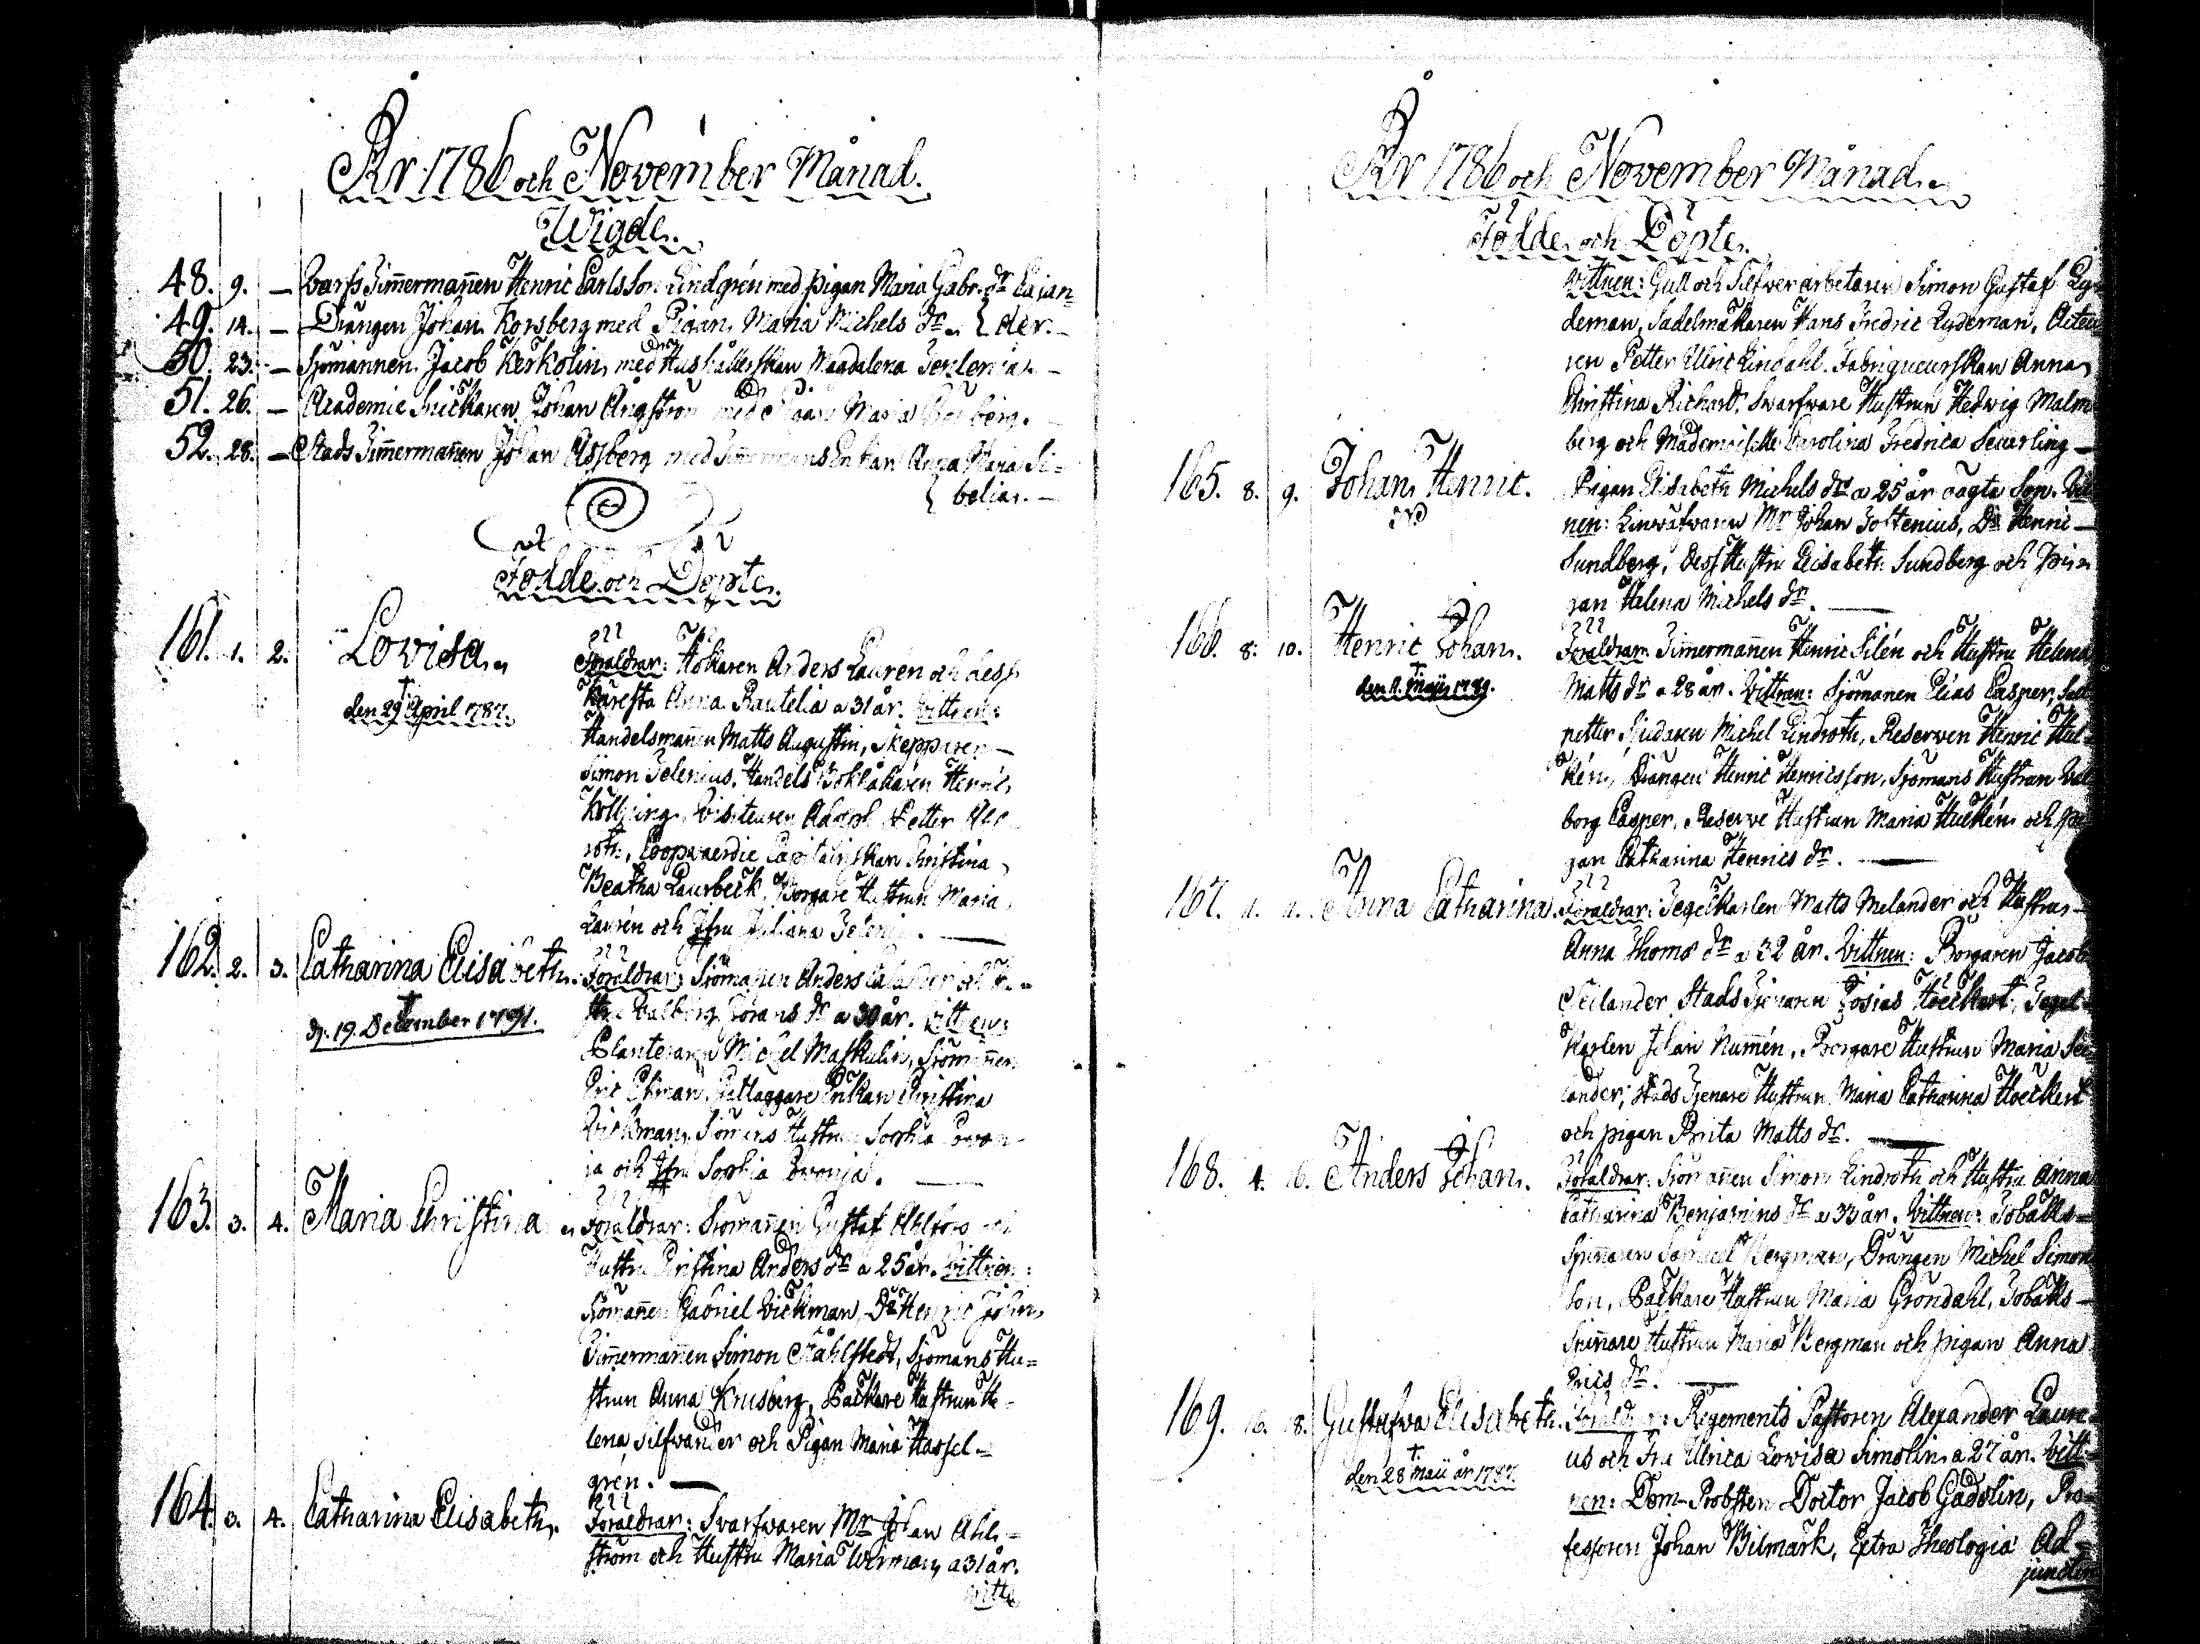 År 1786 och November Månad.
Wigde.
48. 9. — Warfs Zim̄erman̄en Henric Carlsson Lindgrén med pigan Maria Gabr. dr Cajan
49. 14. — Drängen Johan Korsberg med Pigan Maria Michels dr. { der. —
50. 23. — Sjömannen Jacob Kerkolin med Hushållerskan Magdalena —
51. 26. — Academie Snickaren Johan Ångström med Maria
52. 28. — Stads Zim̄erman̄en Johan Åssberg med Enkan Anna Maria Si=
{ belian. —
Födde och Döpte.
161. 1. 2. Lovisa.
† den 29 April 1787.
Föräldrar: Hökaren Anders Lauren och dess
Käresta Anna Rautelia a 31 år. Vittnen:
Handelsman̄en Matts Augustin, Skepparen —
Simon Zelenius, Handels Bokhållaren Henric
Visiteuren Adolph Petter
Coopvaerdie Capitainskan Christina
Beatha Laurbeck, Borgare Hustrun Maria
Laurén och Jfru Juliana —
162. 2. 3. Catharina Elisabeth.
† d. 19. December 1791.
Föräldrar: Sjöman̄en Anders och Hu=
stru Walborg Görans dr a 30 år. Vittnen:
Planteraren Michel Maskulin, Sjöman̄en
Eric Ekman, Enkan Christina
Wickman, Sjömans Hustrun Sophia
och Jfru Sophia —
163. 3. 4. Maria Christina
Föräldrar: Sjöman̄en Gustaf Ahlfors och
Hustru Christina Anders dr a 25 år. Vittnen:
Sjöman̄en Gabriel Wickman, Do Henric
Zim̄erman̄en Simon Ståhlstedt, Sjömans Hu=
strun Anna Krusberg, Backare Hustrun He=
lena Silfwander och Pigan Maria Hassel=
grén. —
164. 3. 4. Catharina Elisabeth.
Föräldrar: Svarfwaren Mr Johan Ahl=
ström och Hustru Maria Wirman, a 31 år.
Vitt
År 1786 och November Månad.
Födde och Döpte.
Vittnen: Gull och Silfwer arbetaren Simon Gustaf Ly=
deman, Sadelmakaren Hans Fredric Lydeman,
ren Petter Ulric Lindahl. Fabriqueurskan Anna
Christina Richardt. Swarfware Hustrun Hedwig Malm
berg och Mademoiselle Carolina Fredrica Seuerling —
165. 8. 9. Johan Henric.
Pigan Elisabeth Michels dr a 25 år oägta Son. Vit
nen: Linwäfwaren Mr Johan Do Henric —
Sundberg, dess Hustru Elisabeth Sundberg och Pi=
gan Helena Michels dr. —
166. 8. 10. Henric Johan.
†
Föräldrar: Zimmerman̄en Henric Silén och Hustru Helena
Matts dr a 28 år. Vittnen: Sjömanen Elias Casper, Sal
petter Siudaren Michel Lindroth, Reserven Henric Hel=
kén, Drängen Henric Henricsson, Sjömans Hustrun Wal
borg Casper, Reserve Hustrun Maria och Pi
gan Catharina Henrics dr. —
167. 11. 12. Anna Catharina.
Föräldrar: Tegelkarlen Matts Melander och Hustru
Anna Thoms dr a 32 år. Vittnen: Borgaren Jacob
Seilander, Stads Tjenaren Josias Hoeckert, Tegel=
Karlen Johan Num̄én, Borgare Hustrun Maria Sei
lander, Stads Tjenare Hustrun Maria Catharina Hoeckert
och pigan Brita Matts dr. —
168. 4. 16. Anders Johan.
Föräldrar: Sjöman̄en Simon Lindroth och Hustru Anna
Catharina Benjamins dr a 33 år. Vittnen: Tobaks=
Spin̄aren Samuel Bergman, Drängen Michel Simon
son, Backare Hustrun Maria Gröndahl, Tobaks —
Spin̄are Hustrun Maria Bergman och pigan Anna
Erics dr. —
169. 16. 18. Gustafva Elisabeth.
† den 28 Maii år 1787.
Föräldrar: Regements Pastoren Alexander Laure
us och Fru Ulrica Lovisa Simolin, a 27 år. Vitt=
nen: Dom-Probsten Doctor Jacob Gadolin, Pro=
fessoren Johan Bilmark, Extra Theologiæ Ad=
juncten